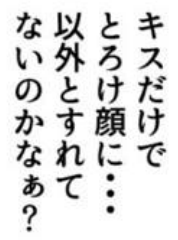 キスだけで
とろけ顔に・・・
以外とすれて
ないのかなぁ？